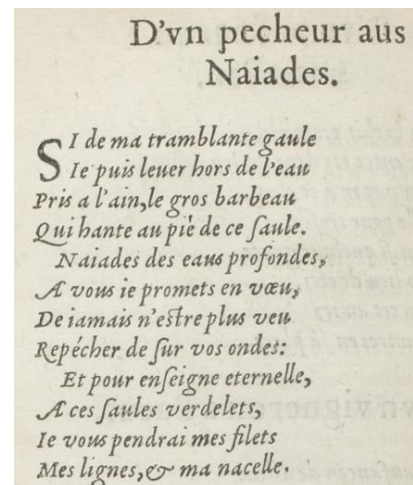 D'vn pecheur aus
Naiades.
SI de ma tramblante gaule
Ie puis leuer hors de l'eau
Pris a l'ain, le gros barbeau
Qui hante au piè de ce ſaule.
Naiades des eaus profondes,
A vous ie promets en vœu,
De iamais n'eſtre plus veu
Repécher de ſur vos ondes:
Et pour enſeigne eternelle,
A ces ſaules verdelets,
Ie vous pendrai mes filets
Mes lignes, & ma nacelle.